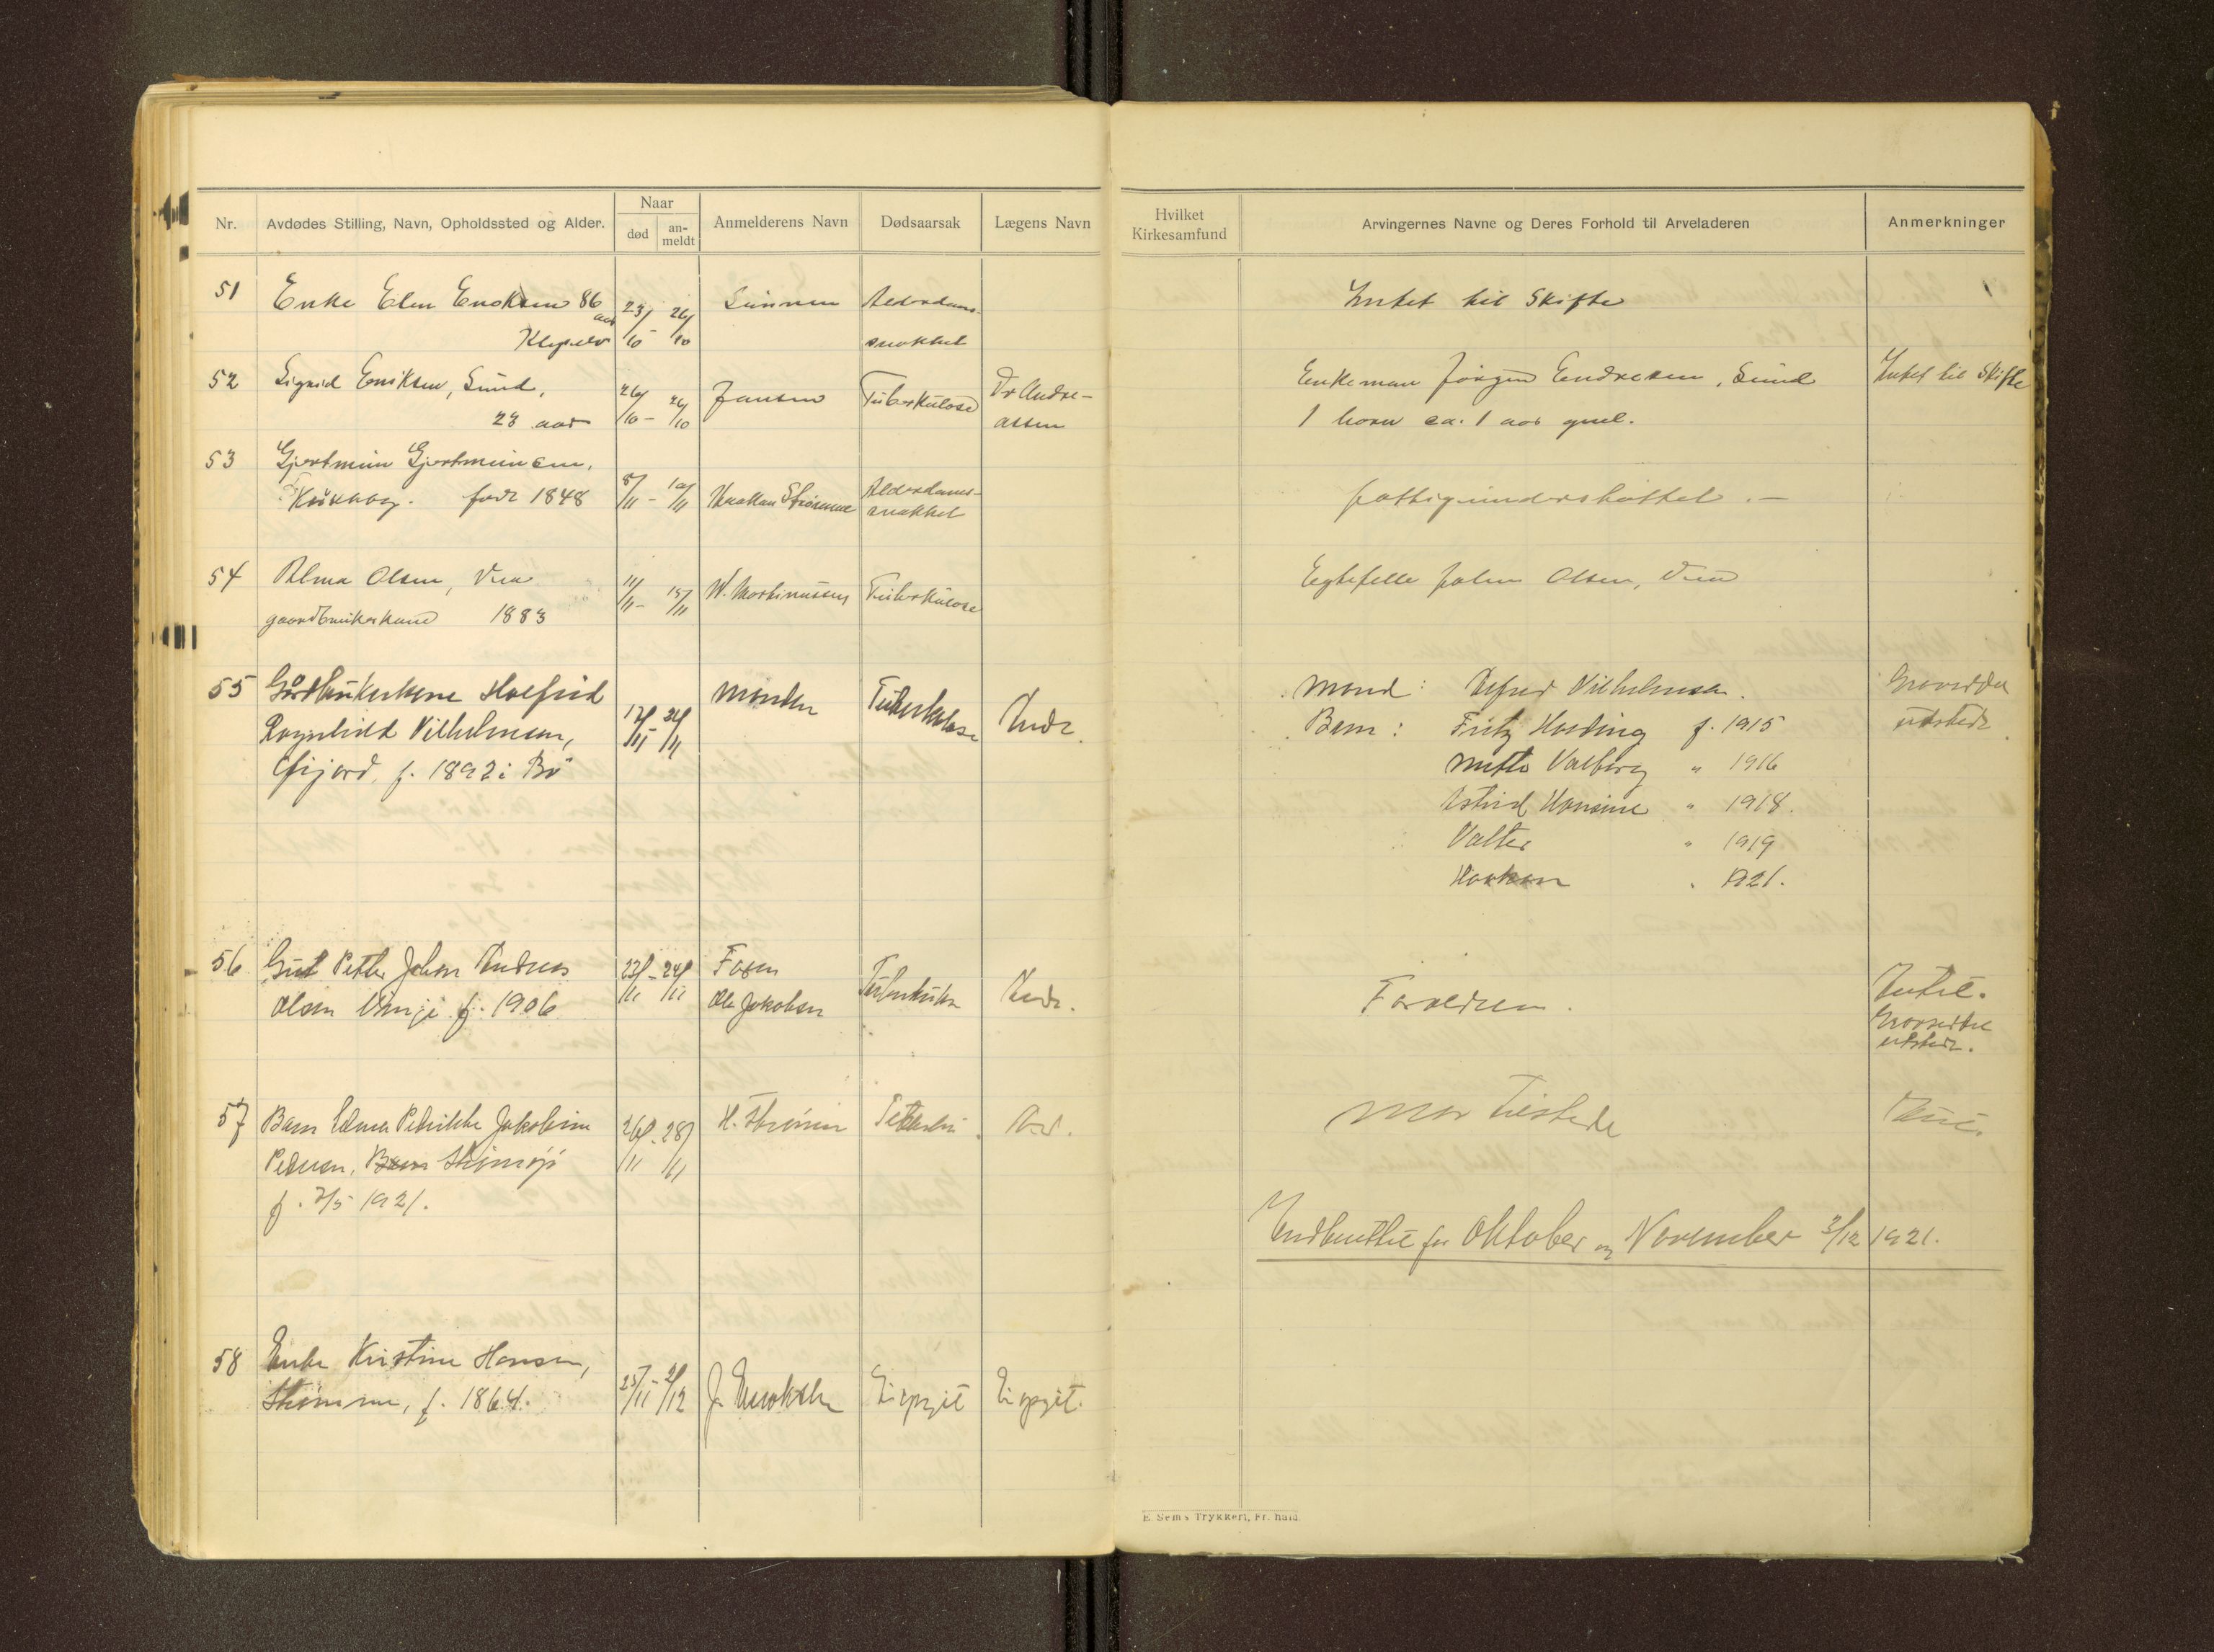 Nr.
Avdødes Stilling, Navn, Opholdssted og Alder.
Naar
død
an-
meldt
Anmelderens Navn
Dødsaarsak
Lægens Navn
Hvilket
Kirkesamfund
Arvingernes Navne og Deres Forhold til Arveladeren
Anmerkninger
51 Enke Elen Enoksen 86
aar
23/10 - 26/10
Alderdoms-
svakhet
Intet til Skifte
52 Sigrid Eriksen, Sund,
23 aar
26/10 - 26/10
Jensen
Tuberkulose
Dr Andre-
assen
Enkeman Jørgen Endresen, Sund
1 barn ca. 1 aar gml.
Intet til Skifte
53 Gjertmun Gjertmunsen,
født 1848
8/11 - 10/11
Haakan Strømme
Alderdoms-
svakhet
fattigunderstøttet . —
54 Alma Olsen,
gaardbrukerkone 1883
11/11 - 15/11
W. Martinussen
Tuberkulose
Egtefelle Johan Olsen,
55 Gårdbrukerkone Halfrid
Ragnhild Vilhelmsen,
Efjord, f. 1892 i Bø
17/11 24/11
Manden
Tuberkulose
Andr.
Mand : Alfred Vilhelmsen.
Barn : Fritz Harding f. 1915
Mette Valborg " 1916
Astrid Hansine " 1918.
Valter " 1919
Haakon " 1921.
Gravseddel
utstedt.
56 Gut Petter Johan Andreas
Olsen Vinje f. 1906
22/11 - 24/11
Faren
Ole Jakobsen
Tuberkulose
Andr.
Foreldren.
Intet.
Gravseddel
utstedt.
57 Barn Edna Petrikke Jakobine
Pedersen, Strømsjö
f. 7/5 1921.
26/11 - 28/11
H. Strømme
And.
Mor tilstede
Indberettet for Oktober og November 3/12 1921.
58 Enke Kristine Hansen,
Strømme, f. 1864.
25/11 - 2/12
J. Enoksen
Ei opgit
Ei opgit.
E. Sems Trykkeri, Fr.hald.